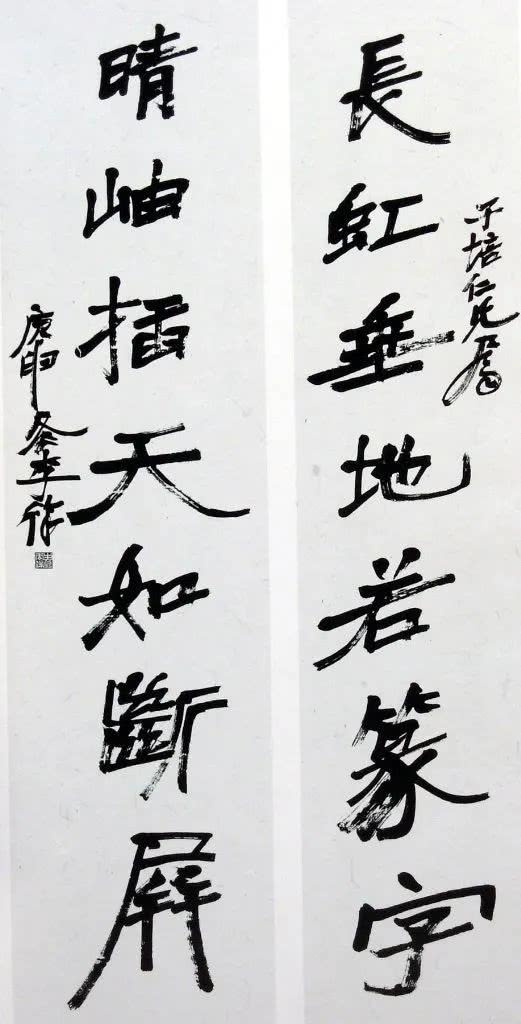 子培仁兄屬
長虹垂地若篆字
晴岫插天如斷屏
庚申冬